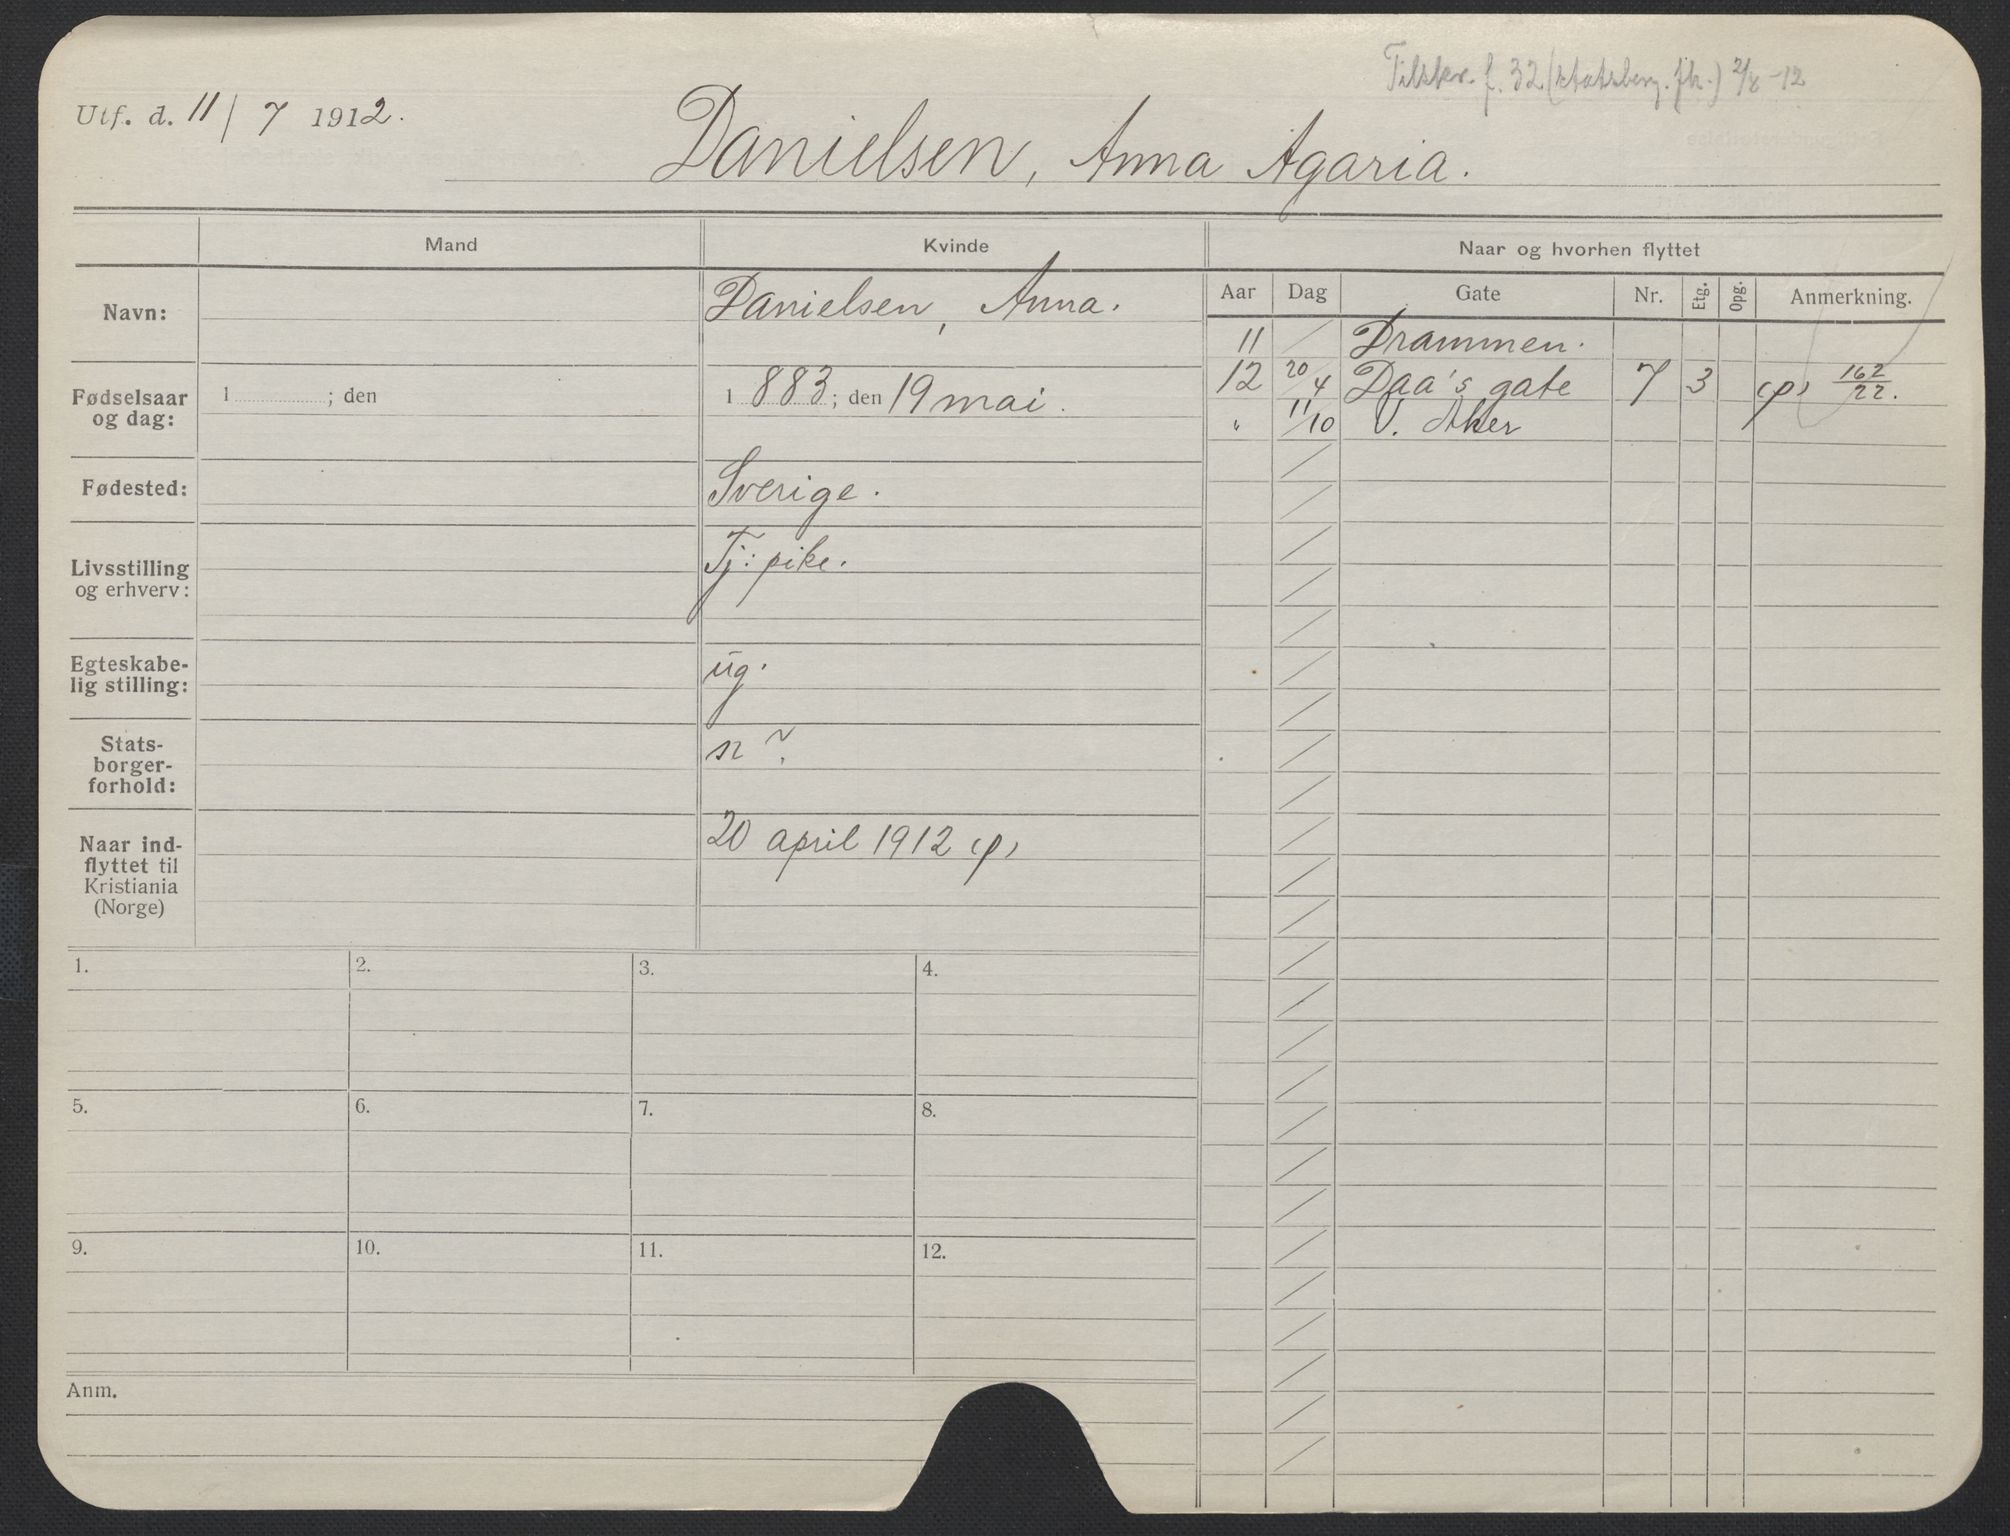 Tilskr. f. 32 (statsberg. fh.) 2/8 -12
Utf. d. 11/7 1912.
Danielsen, Anna Agaria.
Mand Kvinde Naar og hvorhen flyttet
Aar Dag Gate Nr. Etg. Opg. Anmerkning.
Navn: Danielsen, Anna.
11 / Drammen.
12 20/4 Daa's gate 7 3 (p) 162/22.
" 11/10 V. Aker
Fødselsaar
og dag:
1 ; den
1 883 ; den 19 mai.
Fødested: Sverige.
Livsstilling
og erhverv:
Tj: pike.
Egteskabe-
lig stilling:
ug.
Stats-
borger-
forhold:
n ?
Naar ind-
flyttet til
Kristiania
(Norge)
20 april 1912 (p)
1. 2. 3. 4.
5. 6. 7. 8.
9. 10. 11. 12.
Anm.